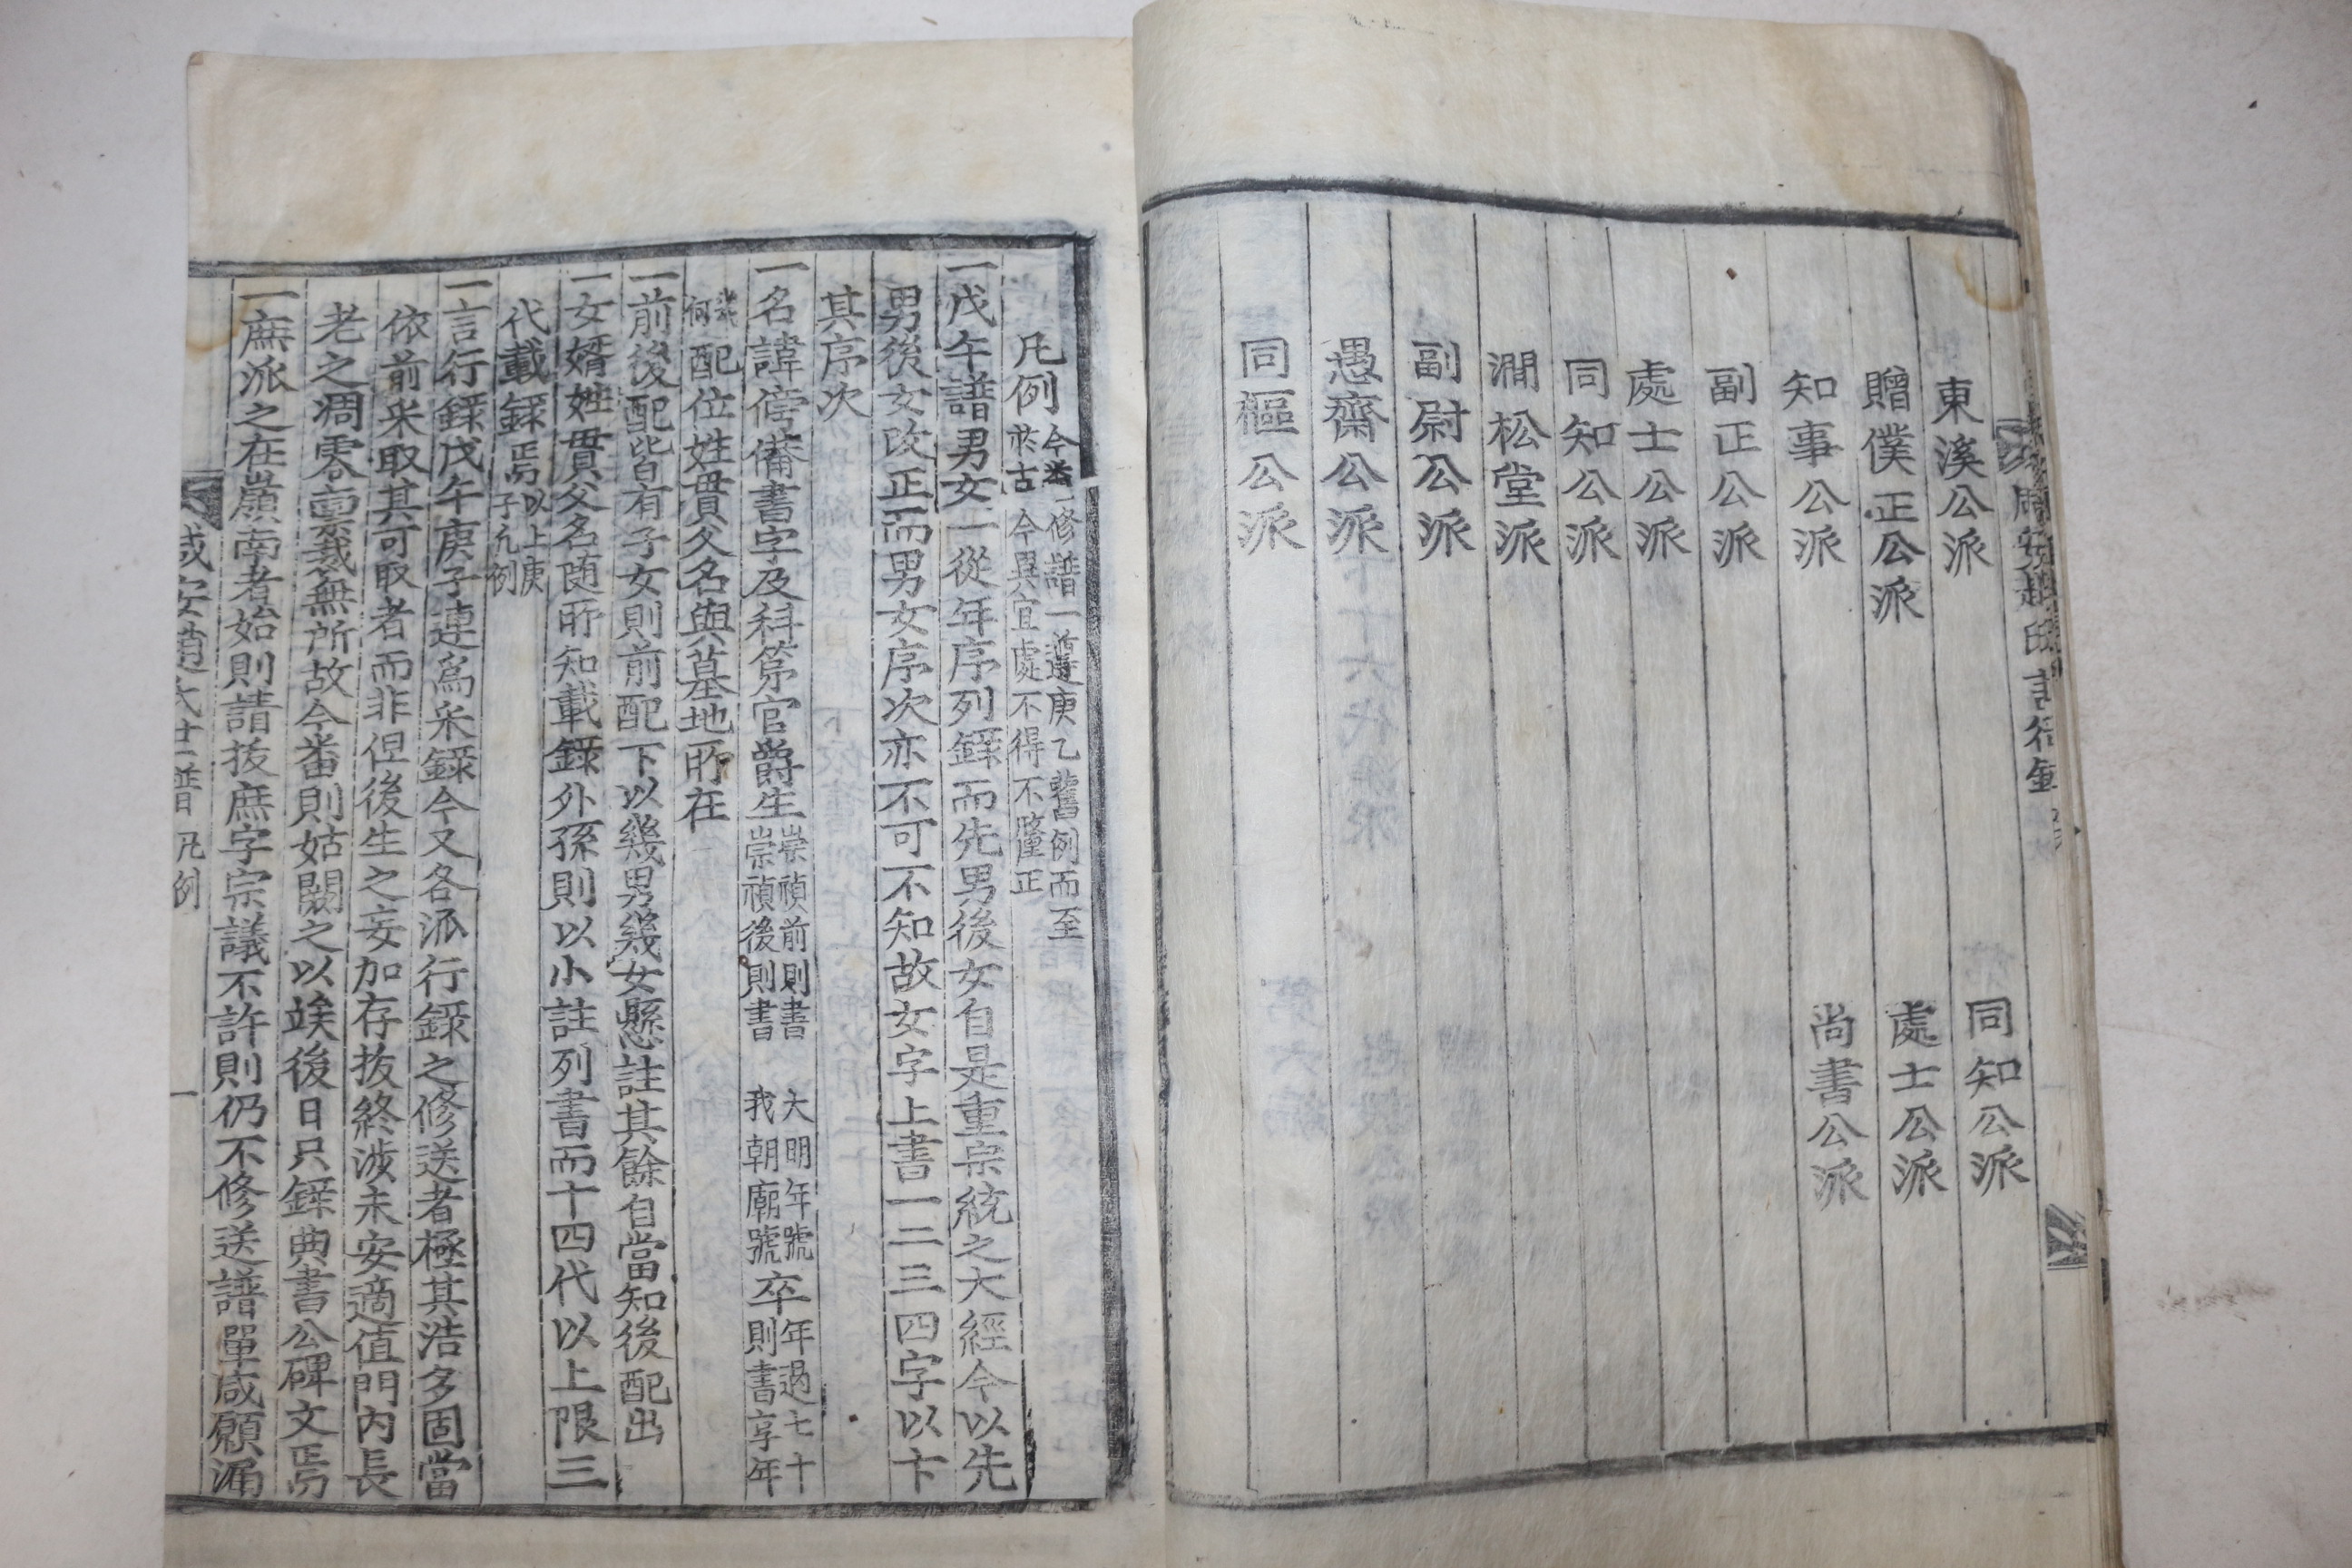 東溪公派
同知公派
贈僕正公派
處士公派
知事公派
尚書公派
副正公派
處士公派
同知公派
澗松堂派
副尉公派
愚齋公派
同樞公派
凡例
今番修譜一遵庚乙舊例而至
於古今異宜處不得不釐正
一戊午譜男女一從年序列錄而先男後女自是重宗統之大經今以先
男後女改正而男女序次亦不可不知故女字上書一二三四字以卞
其序次
一名諱傍備書字及科第官爵生崇禎前則書 大明年號
崇禎後則書 我朝廟號卒年過七十
則書享年
幾何配位姓貫父名與墓地所在
一前後配皆有子女則前配下以幾男幾女懸註其餘自當知後配出
一女婿姓貫父名随所知載錄外孫則以小註列書而十四代以上限三
代載錄焉以上庚
子元例
一言行錄戊午庚子連爲采錄今又各派行錄之修送者極其浩多固當
依前采取其可取者而非但後生之妄加存拔終涉未安適值門內長
老之凋零禀裁無所故今番則姑闕之以竢後日只錄典書公碑文焉
一庶派之在嶺南者始則請拔庶字宗議不許則仍不修送譜單咸願漏
咸安趙氏世譜 凡例 一